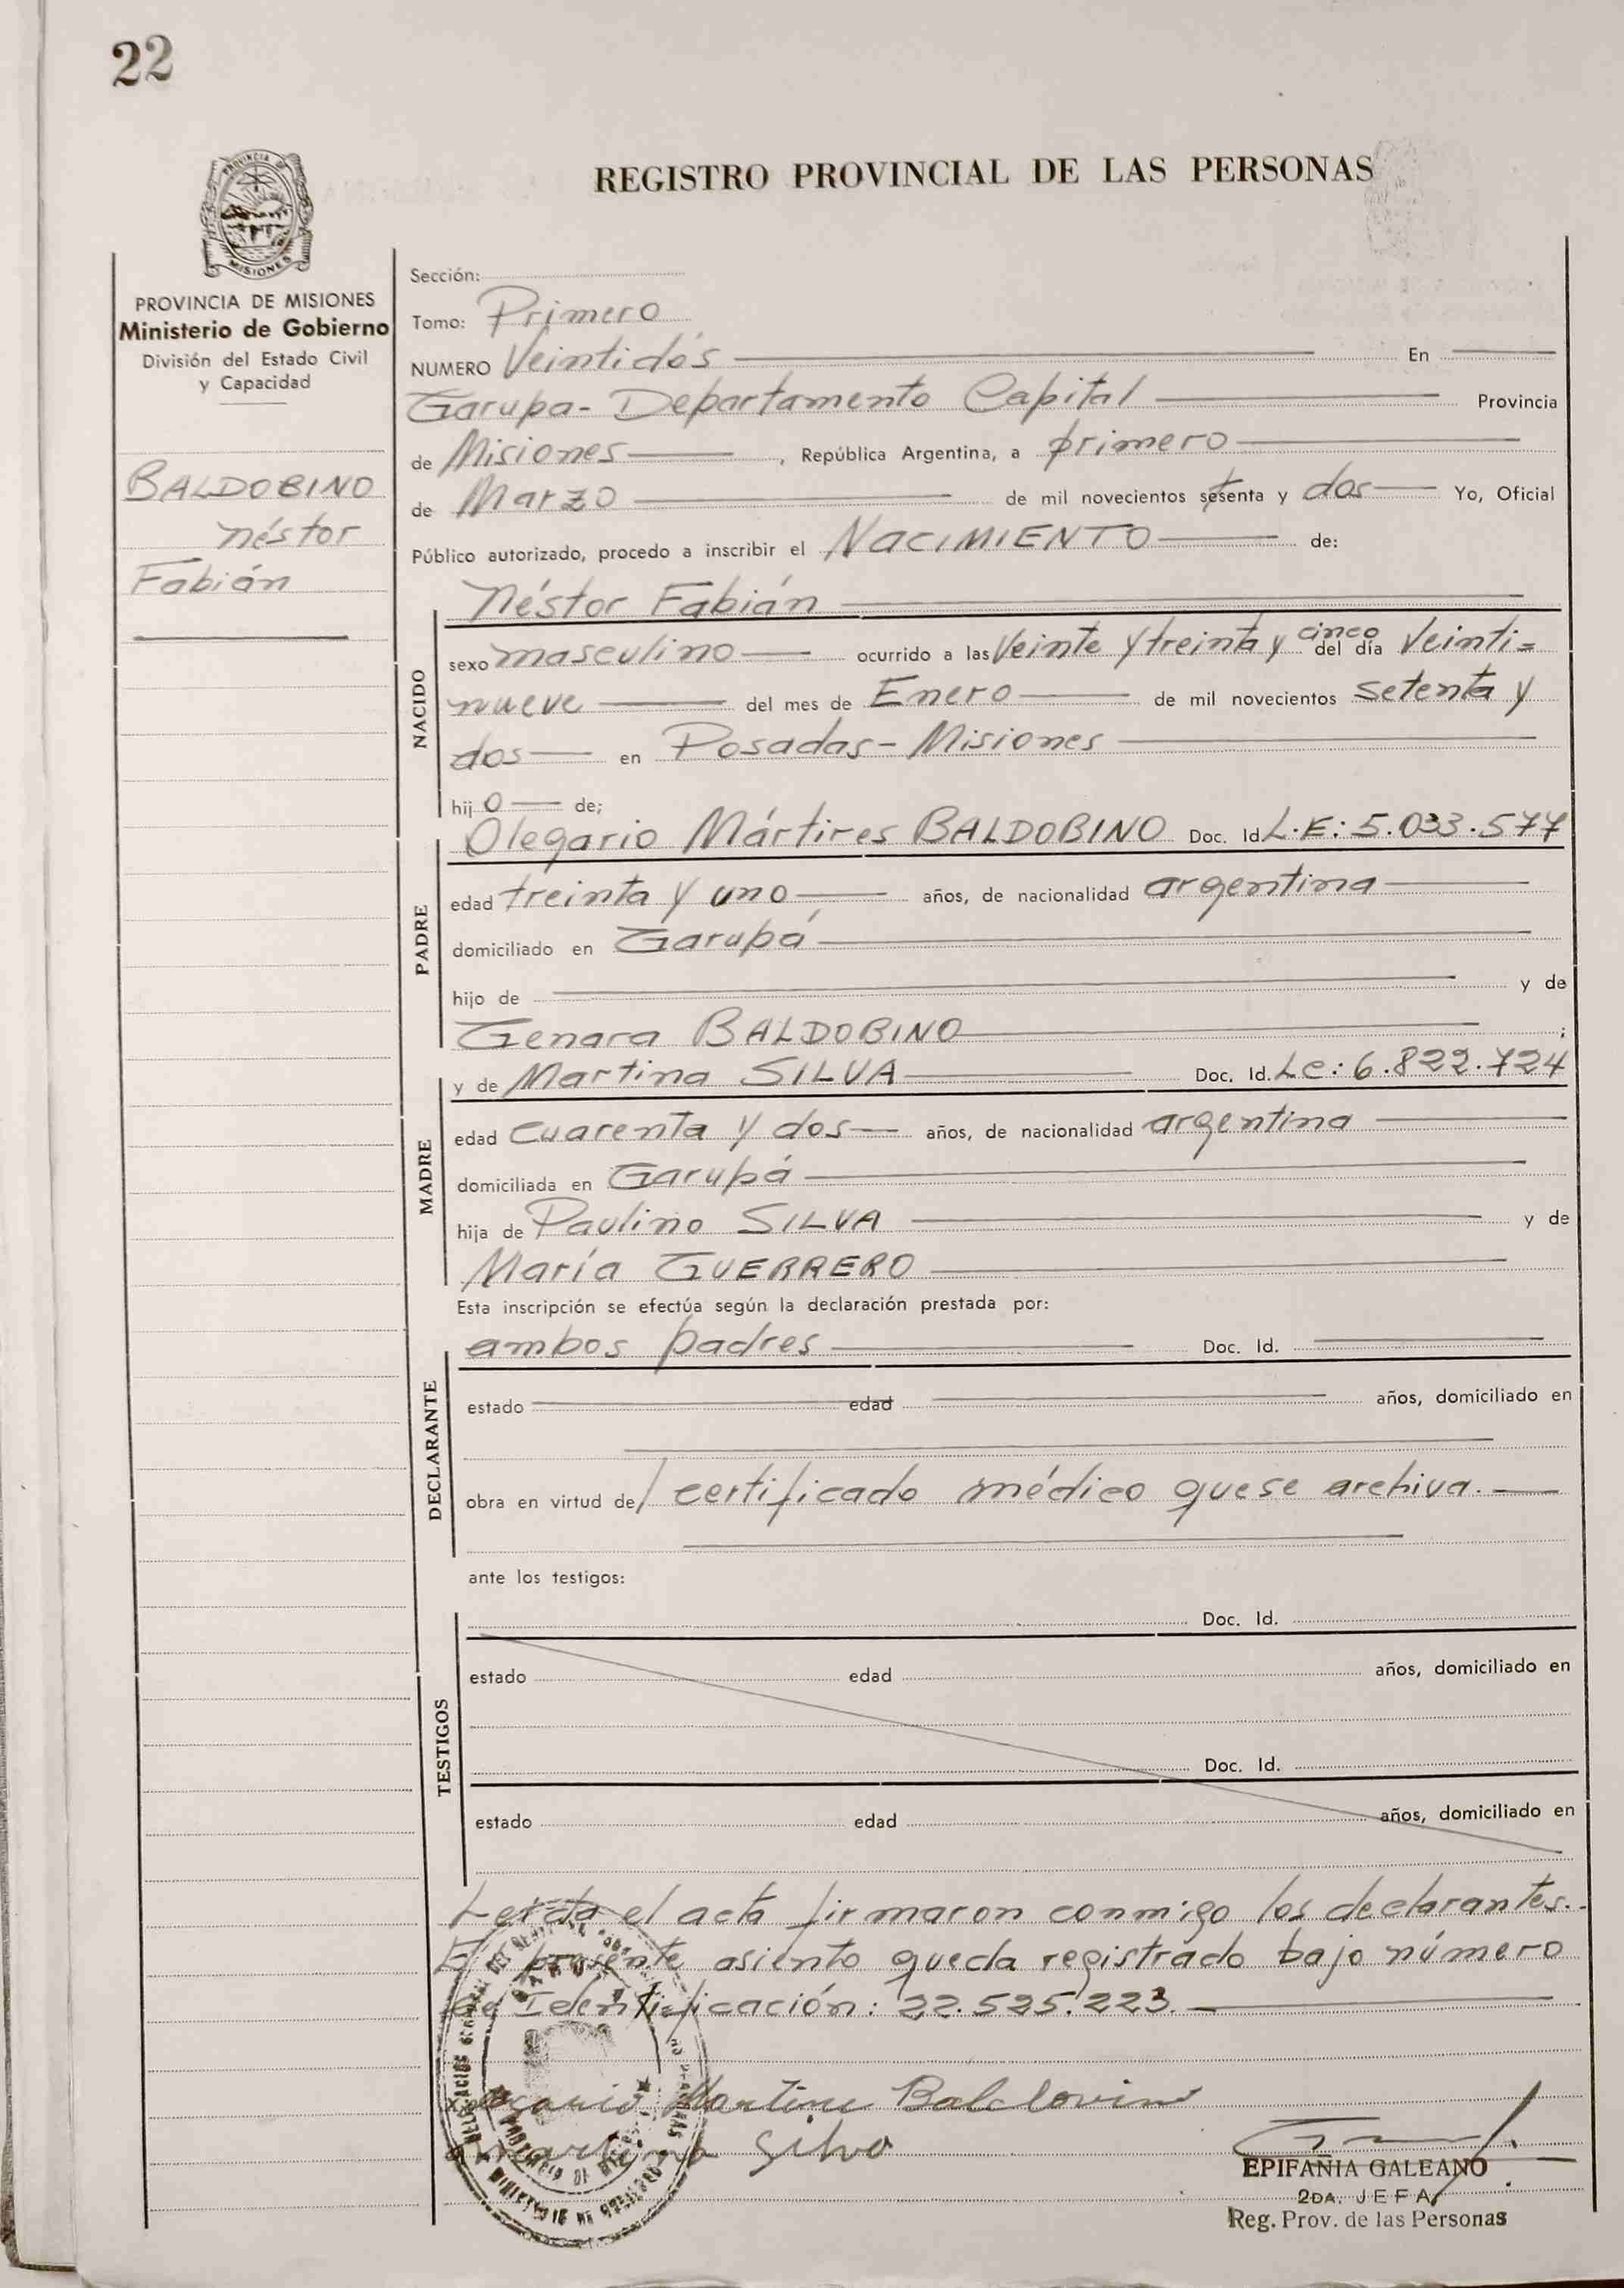 22
PROVINCIA DE
MISIONES
REGISTRO PROVINCIAL DE LAS PERSONAS
PROVINCIA DE MISIONES
Ministerio de Gobierno
División del Estado Civil
y Capacidad
BALDOBINO
Néstor
Fabián
Sección:
Tomo: Primero
NUMERO Veintidós En
Garupa - Departamento Capital Provincia
de Misiones, República Argentina, a primero
de Marzo de mil novecientos setenta y dos Yo, Oficial
Público autorizado, procedo a inscribir el NACIMIENTO de:
Néstor Fabián
NACIDO
sexo masculino ocurrido a las Veinte y treinta y cinco del día Veinti=
nueve del mes de Enero de mil novecientos setenta y
dos en Posadas - Misiones
hijo de;
PADRE
Olegario Mártires BALDOBINO Doc. Id. L.E: 5.033.577
edad treinta y uno años, de nacionalidad argentina
domiciliado en Garupá
hijo de y de
Genara BALDOBINO ;
MADRE
y de Martina SILVA Doc. Id. Lc: 6.822.724
edad cuarenta y dos años, de nacionalidad argentina
domiciliada en Garupá
hija de Paulino SILVA y de
María GUERRERO
Esta inscripción se efectúa según la declaración prestada por:
DECLARANTE
ambos padres Doc. Id.
estado edad años, domiciliado en
obra en virtud de/ certificado médico que se archiva.
ante los testigos:
TESTIGOS
Doc. Id.
estado edad años, domiciliado en
Doc. Id.
estado edad años, domiciliado en
Leída el acta firmaron conmigo los declarantes.
El presente asiento queda registrado bajo número
de Identificación: 22.525.223.
Martires Baldovino
Martina Silva
EPIFANIA GALEANO
2DA. JEFA
Reg. Prov. de las Personas